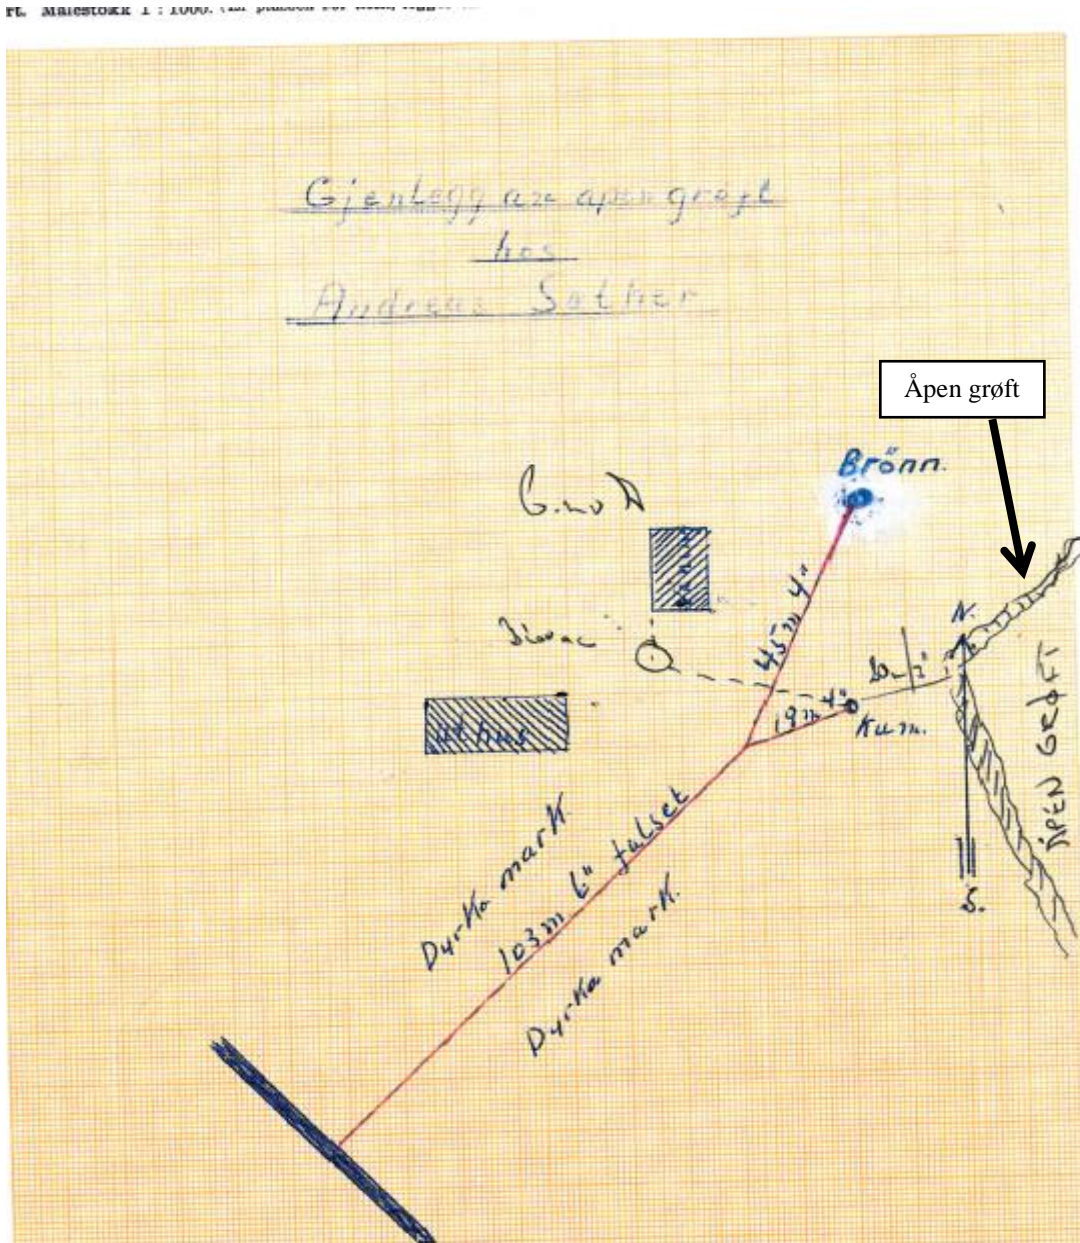 rt. Målestokk 1 : 1000.
Gjenlegg av åpen grøft
hos
Andreas Sæther
Åpen grøft
Brönn.
45m 4"
N.
19m 4"
Kum.
ÅPEN GRØFT
uthus
S.
Dyrka mark
103m 6" falset
Dyrka mark.